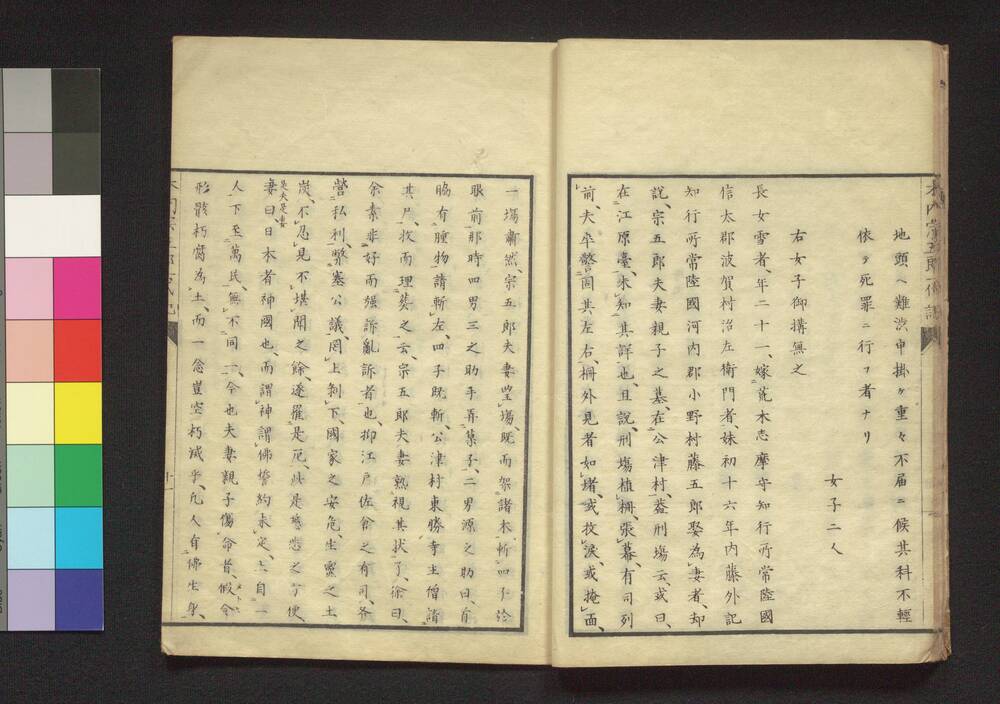 地頭ヘ難渋申掛ケ重々不届ニ候其科不輕
依テ死罪ニ行フ者ナリ
女子二人
右女子御搆無之
長女雪者、年二十一、嫁荒木志摩守知行所常陸國
信太郡波賀村治左衛門者、妹初十六年内藤外記
知行所常陸國河内郡小野村藤五郎娶為妻者、却
説、宗五郎夫妻親子之墓、在公津村、蓋刑塲云、或曰、
在江原臺、未知其詳也、且説刑塲植柵、張幕、有司列
前、夫卒警固其左右、柵外見者如堵、或投涙、或掩面、
一塲肅然、宗五郎夫妻望塲、既而架諸木、斬四子於
眼前、那時四男三之助手弄菓子、二男源之助曰、有
腦有腫物請斬左、四子既斬、公津村東勝寺主僧請
其尸、收而理葬之云、宗五郎夫妻熟視其状了、徐曰、
余素非好而强訴亂訴者也、抑江戸佐倉之有司、各
營私利、弊塞公議、罔上剝下、國家之安危、生靈之土
炭、不忍見不堪聞之餘、遂罹是厄、此是慈悲之方便
是夫是妻
妻曰、日本者神國也、而謂神謂佛誓約未定、上自一
人下至萬民、無不同一、今也夫妻親子傷命者、假令
形骸朽腐為土、而一念豈空朽滅乎、凡人有佛生身、
十一